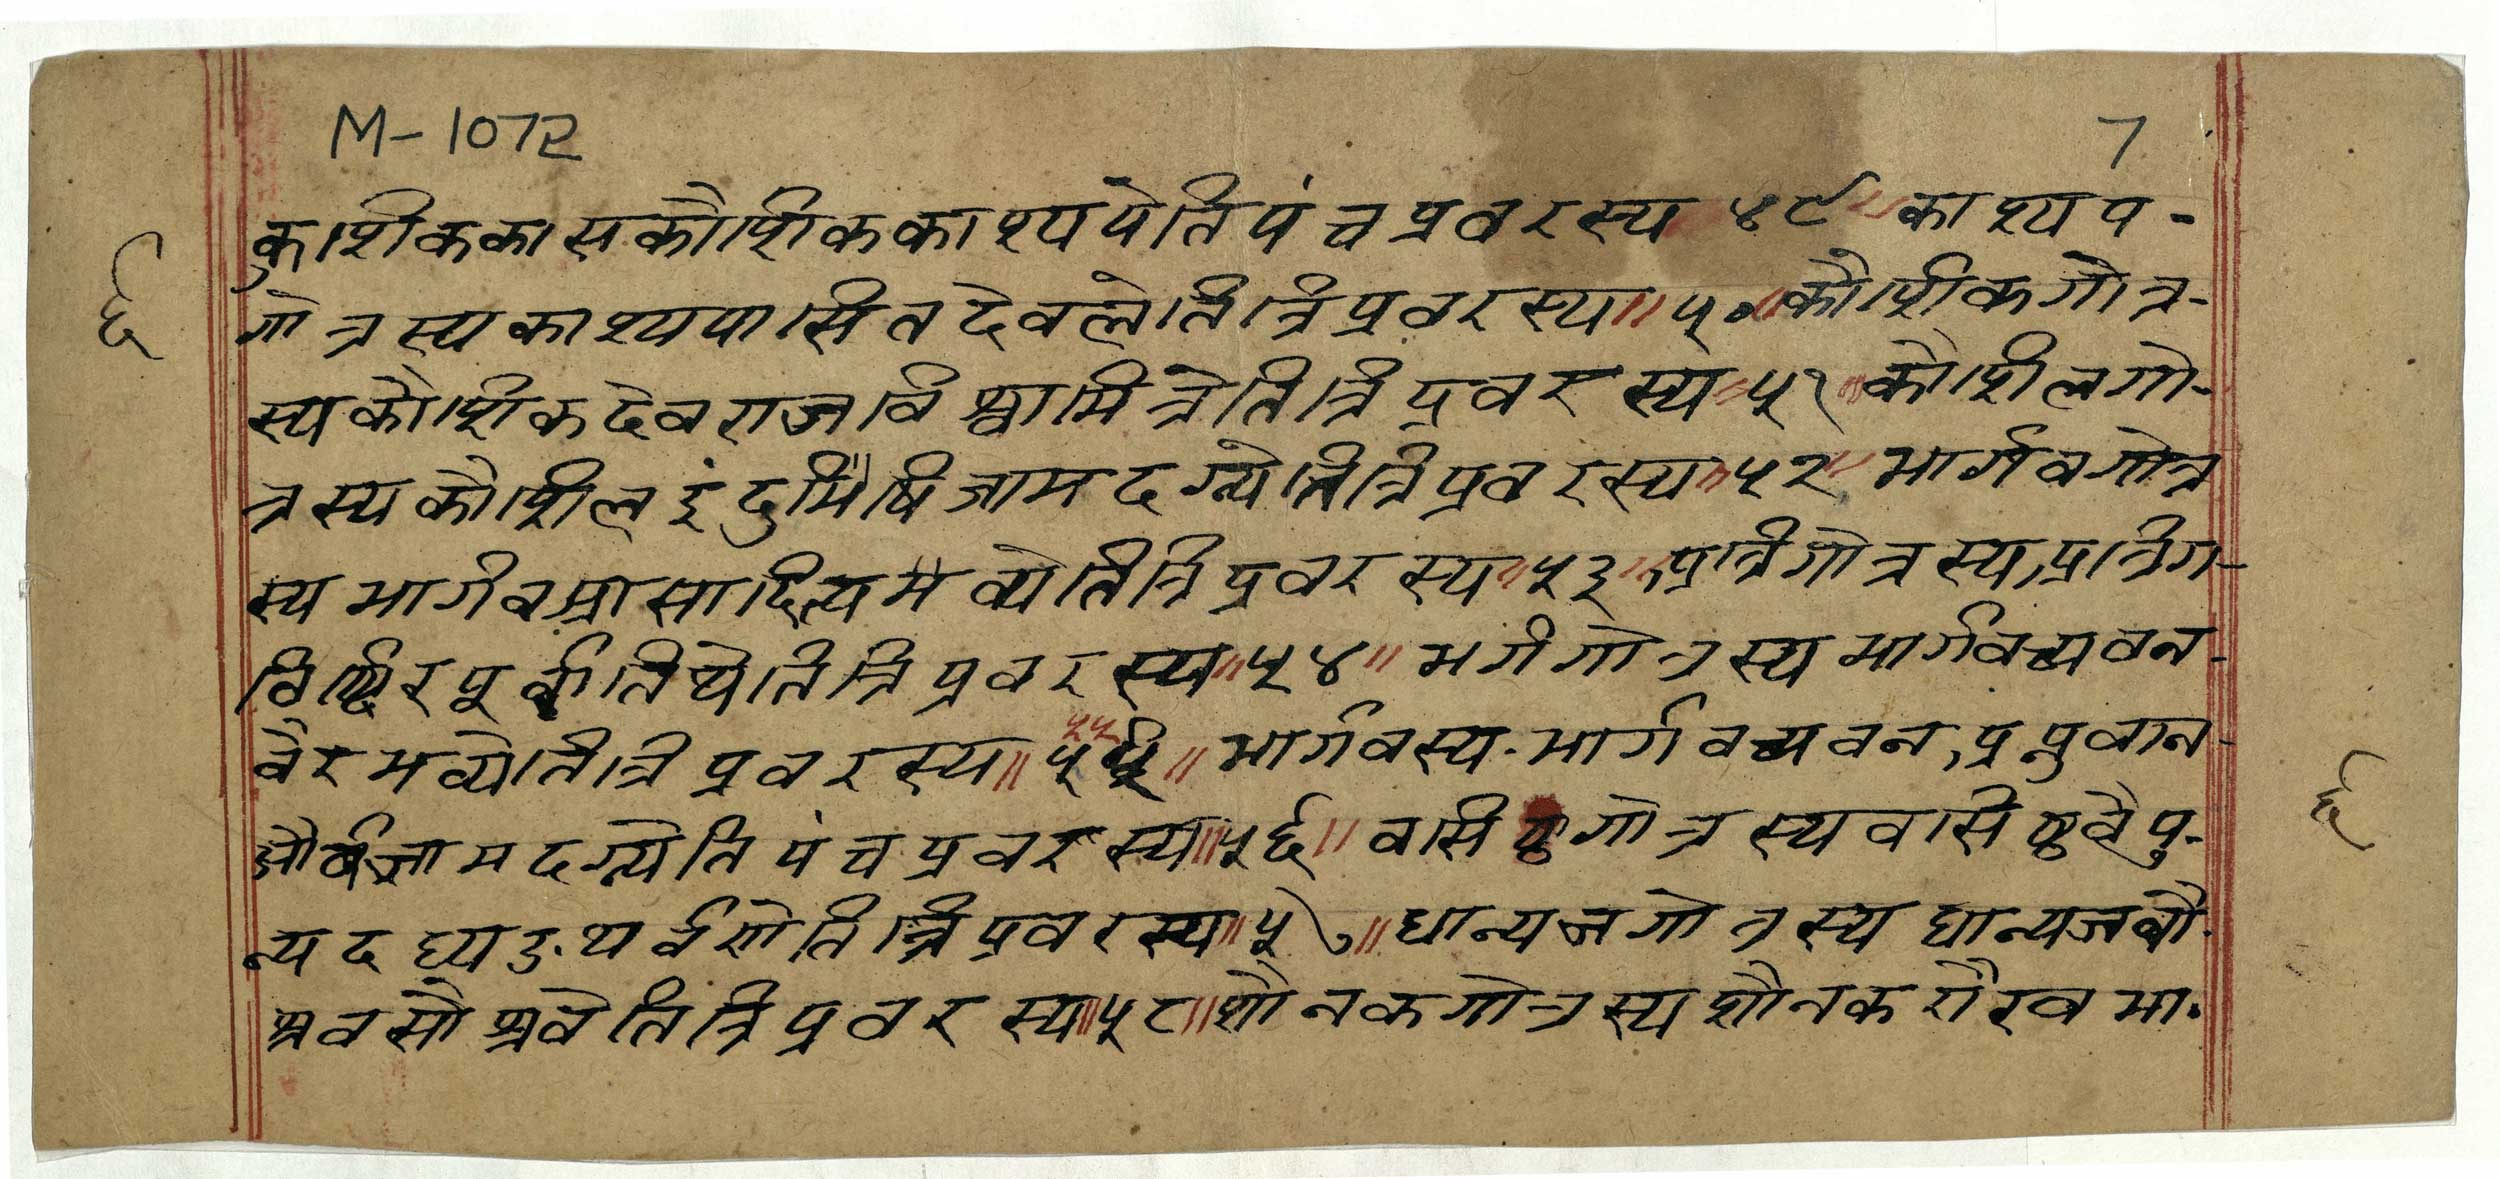 M-1072
7
कुशिककासकौशिककाश्यपेतिपंचप्रवरस्य ४९ ॥ काश्यप-
६ गोत्रस्यकाश्यपासितदेवलेतित्रिप्रवरस्य ॥ ५० ॥ कौशिकगोत्र-
स्यकौशिकदेवराजविश्वामित्रेतित्रिप्रवरस्य ॥ ५१ ॥ कौशिलगो-
त्रस्यकौशिल जामदग्न्येतित्रिप्रवरस्य ॥ ५२ ॥ भार्गवगोत्र
स्यभार्गव तित्रिप्रवरस्य ॥ ५३ ॥ अत्रिगोत्रस्यअत्रिग-
तित्रिप्रवरस्य ॥ ५४ ॥ भर्गगोत्रस्यभार्गवच्यवन-
तित्रिप्रवरस्य ॥ ५५ ॥ भार्गवस्य-भार्गवच्यवनअप्नुवान-
और्वजामदग्न्येतिपंचप्रवरस्य ॥ ५६ ॥ वासिष्ठगोत्रस्यवासिष्ठ ६
तित्रिप्रवरस्य ॥ ५७ ॥ धान्यजगोत्रस्य धान्यज
श्रवसौश्रवेतित्रिप्रवरस्य ॥ ५८ ॥ शौनकगोत्रस्यशौनक